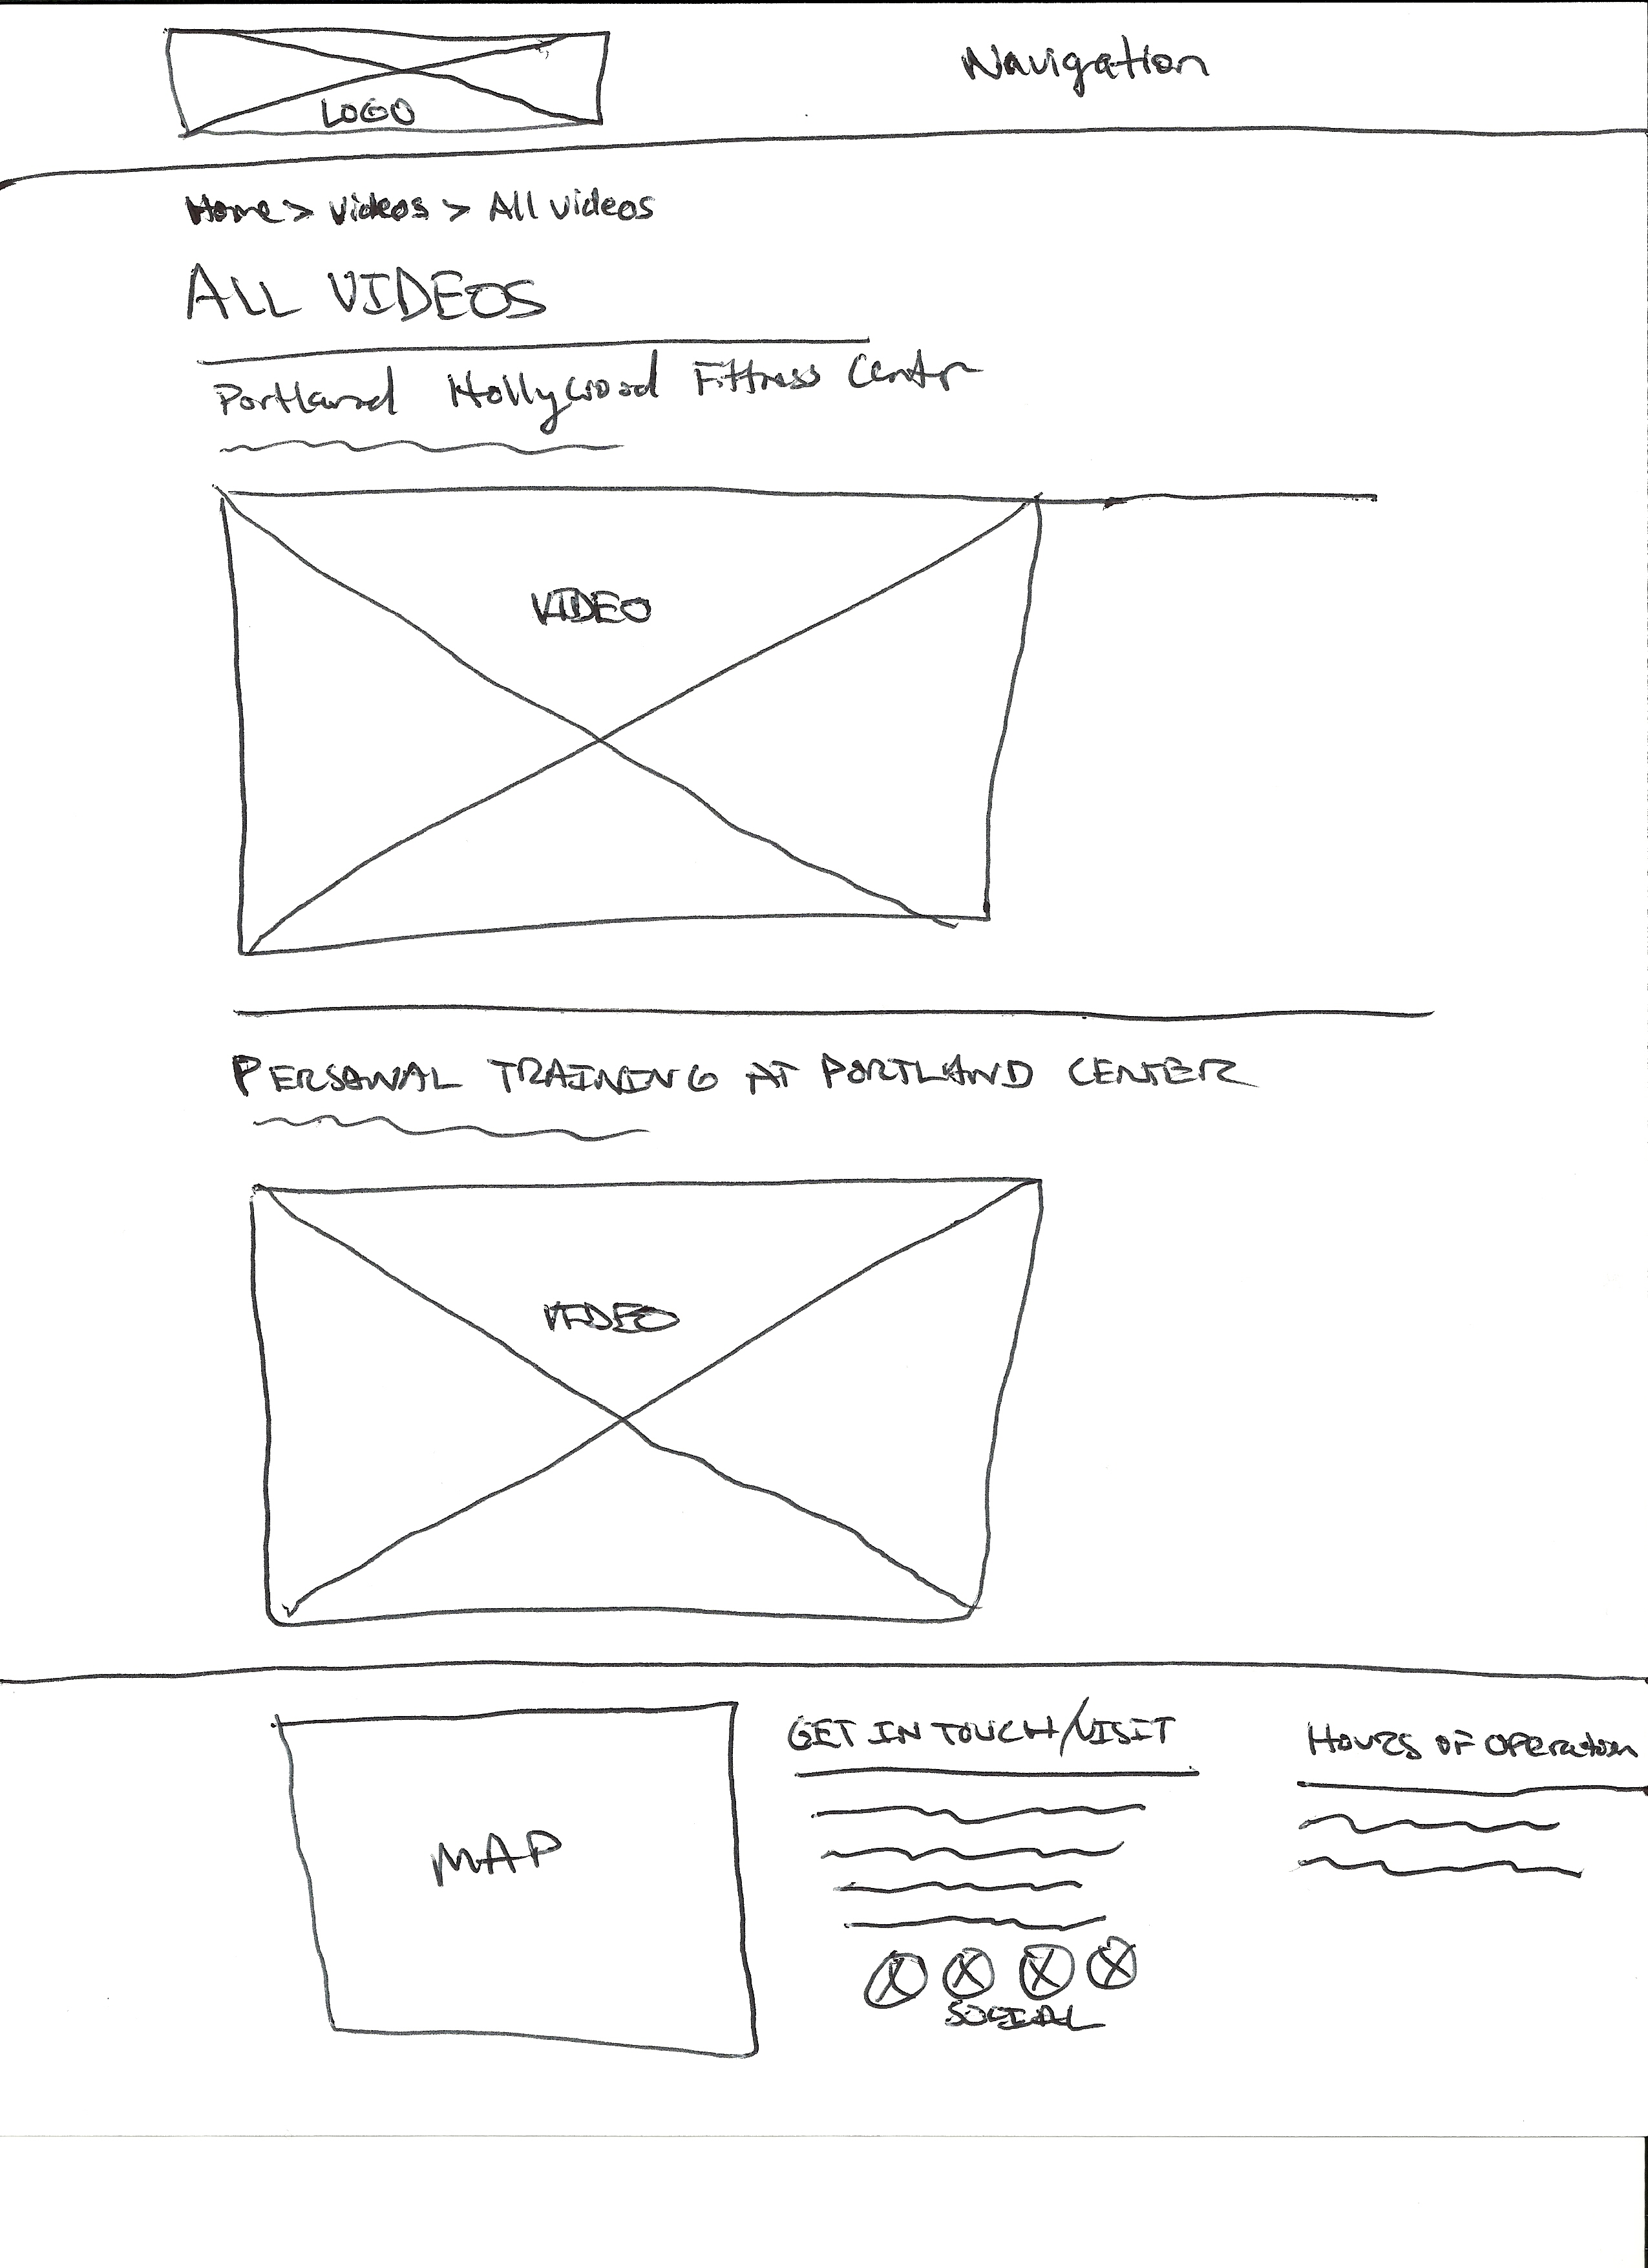 LOGO
Navigation
Home > Videos > All videos
ALL VIDEOS
Portland Hollywood Fittness Center
VIDEO
PERSONAL TRAINING AT PORTLAND CENTER
VIDEO
MAP
GET IN TOUCH/VISIT
SOCIAL
HOURS OF OPERATION